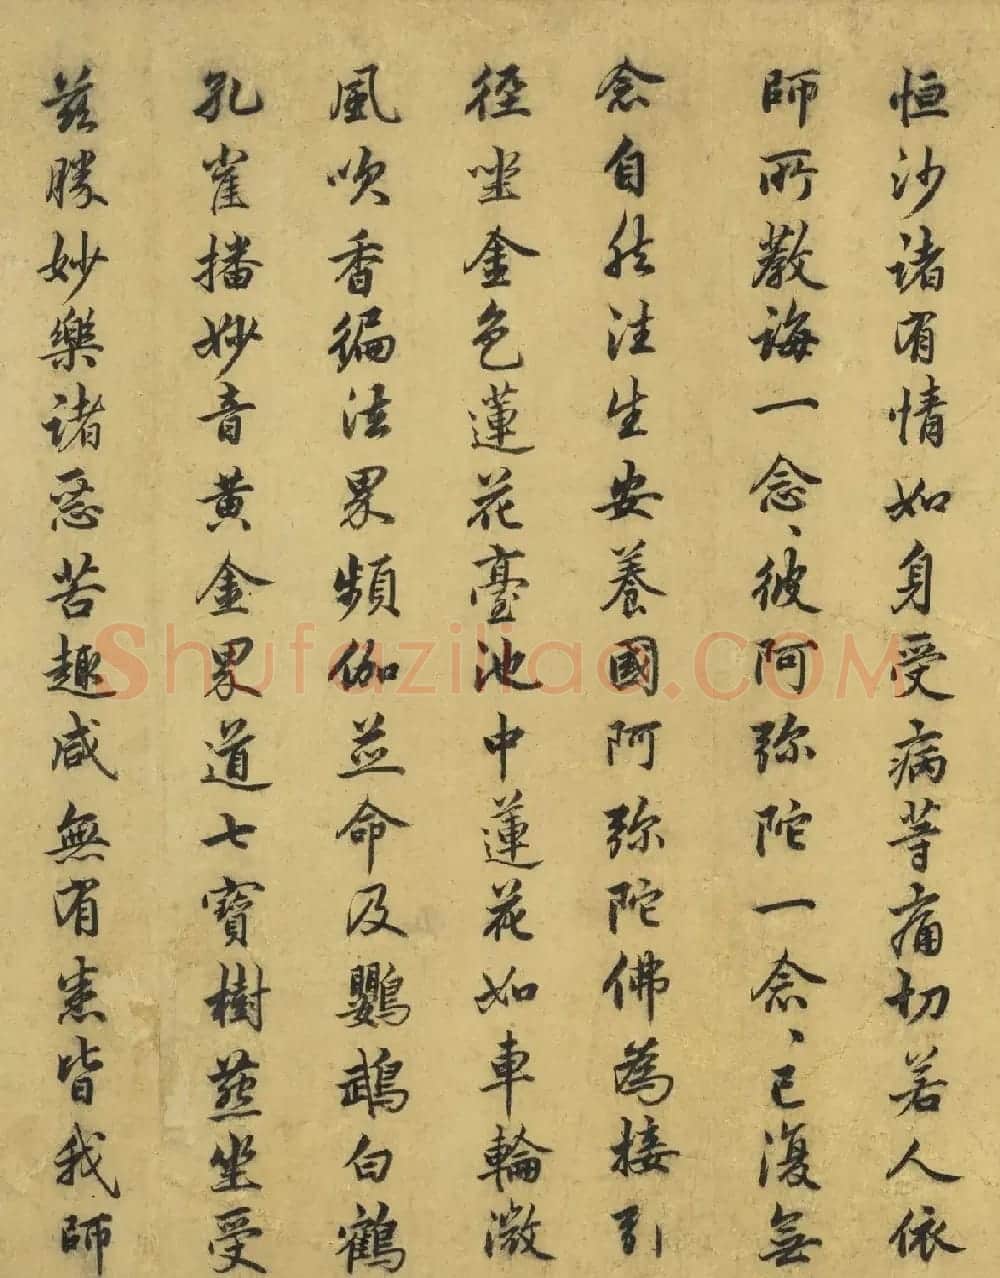 恒沙諸有情如身受病等痛切若人依
師所教誨一念、彼阿弥陀一念、已復無
念自然往生安養國阿弥陀佛為接引
徑坐金色蓮花臺池中蓮花如車輪微
風吹香徧法界頻伽並命及鸚鵡白鶴
孔雀播妙音黃金界道七寶樹燕坐受
茲勝妙樂諸惡苦趣咸無有悉皆我師
Shufaziliao.COM